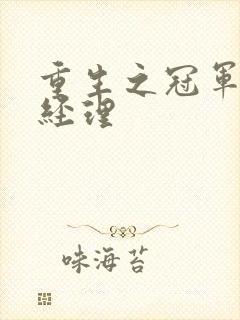 重生之冠軍
經理
味海苔